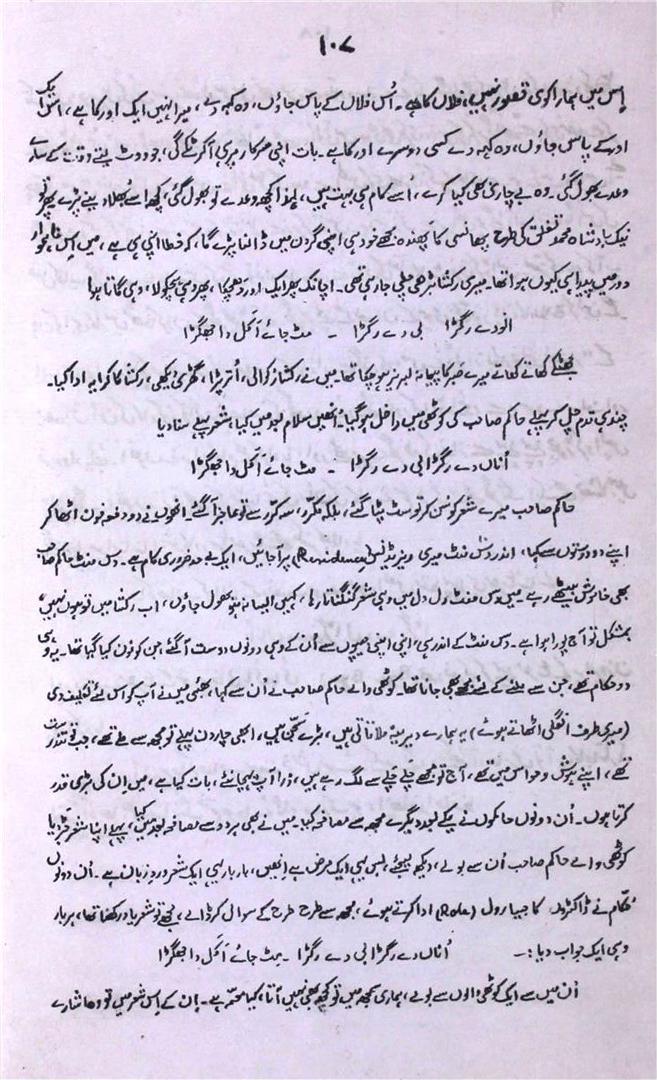 ۱۰۷
اِس میں ہمارا کوئی قصور نہیں، فلاں کا ہے۔ اُس فلاں کے پاس جاؤں، وہ کہہ دے، میرا نہیں ایک اور کا ہے، اس ایک
اور کے پاس جاؤں، وہ کہہ دے کسی دوسرے اور کا ہے۔ بات اپنی سرکار پر ہی آکر رُکے گی، جو ووٹ لیتے وقت کے سارے
وعدے بھول گئی۔ وہ بے چاری بھی کیا کرے، اُسے کام ہی بہت ہیں، لہٰذا کچھ وعدے تو بھول گئی، کچھ اُسے بُھلا دینے پڑے پھر تو
نیک بادشاہ محمد تغلق کی طرح پھانسی کا پھندہ مجھے خود ہی اپنی گردن میں ڈالنا پڑے گا، کہ خطا اپنی ہی ہے، میں اِس ناہنجوار
دور میں پیدا ہی کیوں ہوا تھا۔ میری رکشا بڑھی چلی جا رہی تھی۔ اچانک پھر ایک اور دھچکا، پھر وہی ہچکولا، وہی گانا ہوا
انو دے رگڑا بی دے رگڑا ۔ مٹ جائے اَکل دا جھگڑا
جھٹکے کھاتے کھاتے میرے صبر کا پیمانہ لبریز ہو چکا تھا۔ میں نے رکشا رُکوالی، اُتر پڑا، گھڑی دیکھی، رکشا کا کرایہ ادا کیا۔
چند ہی قدم چل کر پہلے حاکم صاحب کی کوٹھی میں داخل ہو گیا۔ اُنھیں سلام بعد میں کیا، شعر پہلے سنا دیا
اُناں دے رگڑا بی دے رگڑا ۔ مٹ جائے اَکل دا جھگڑا
حاکم صاحب میرے شعر کو سُن کر تو سٹ پٹا گئے، بلکہ مکرّر، سہ کرر سے تو عاجز آگئے۔ انھوں نے دو دفعہ فون اٹھا کر
اپنے دو دوستوں سے کہا، اندر دس منٹ میری ریزیڈنس (Residence) پر آجائیں، ایک بے حد ضروری کام ہے۔ دس منٹ حاکم صاحب
بھی خاموش بیٹھے رہے۔ میں دس منٹ دل دل میں وہی شعر گنگناتا رہا، کہیں ایسا نہ ہو بھول جاؤں، اب رکشا میں تو ہوں نہیں،
بمشکل تو آج پورا ہوا ہے۔ دس منٹ کے اندر ہی، اپنی اپنی جیپوں سے اُن کے وہی دونوں دوست آگئے جن کو فون کیا گیا تھا۔ یہ وہی
دو حکام تھے، جن سے ملنے کے لئے مجھے بھی جانا تھا۔ کوٹھی والے حاکم صاحب نے اُن سے کہا، بھئی میں نے آپ کو اس لئے تکلیف دی
(میری طرف انگلی اٹھاتے ہوئے) یہ ہمارے دیرینہ ملاقاتی ہیں، ابھی چار دن پہلے تو مجھ سے ملے تھے، جب تو تندرست
تھے، اپنے ہوش و حواس میں تھے، آج تو مجھے چلے چلے سے لگ رہے ہیں، ذرا آپ پہچانئے، بات کیا ہے، میں اِن کی بڑی قدر
کرتا ہوں۔ اُن دونوں حاکموں نے یکے بعد دیگرے مجھ سے مصافحہ کیا۔ میں نے بھی ہر دو سے مصافحہ بعد میں کیا، پہلے اپنا شعر پڑھ دیا
کوٹھی والے حاکم صاحب اُن سے بولے، دیکھ لیجئے، بس یہی ایک مرض ہے اِنھیں، بار بار یہی ایک شعر ورد زبان ہے۔ اُن دونوں
حُکّام نے ڈاکٹروں کا جیسا رول (Role) ادا کرتے ہوئے، مجھ سے طرح طرح کے سوال کر ڈالے، مجھے تو شعر یاد رکھنا تھا، ہر بار
وہی ایک جواب دیا :۔ اُناں دے رگڑا بی دے رگڑا ۔ مٹ جائے اَکل دا جھگڑا
اُن میں سے ایک کوٹھی والوں سے بولے، ہماری سمجھ میں تو کچھ بھی نہیں آتا، کیا معمّہ ہے۔ اِن کے اِس شعر میں تو وہ اشارے